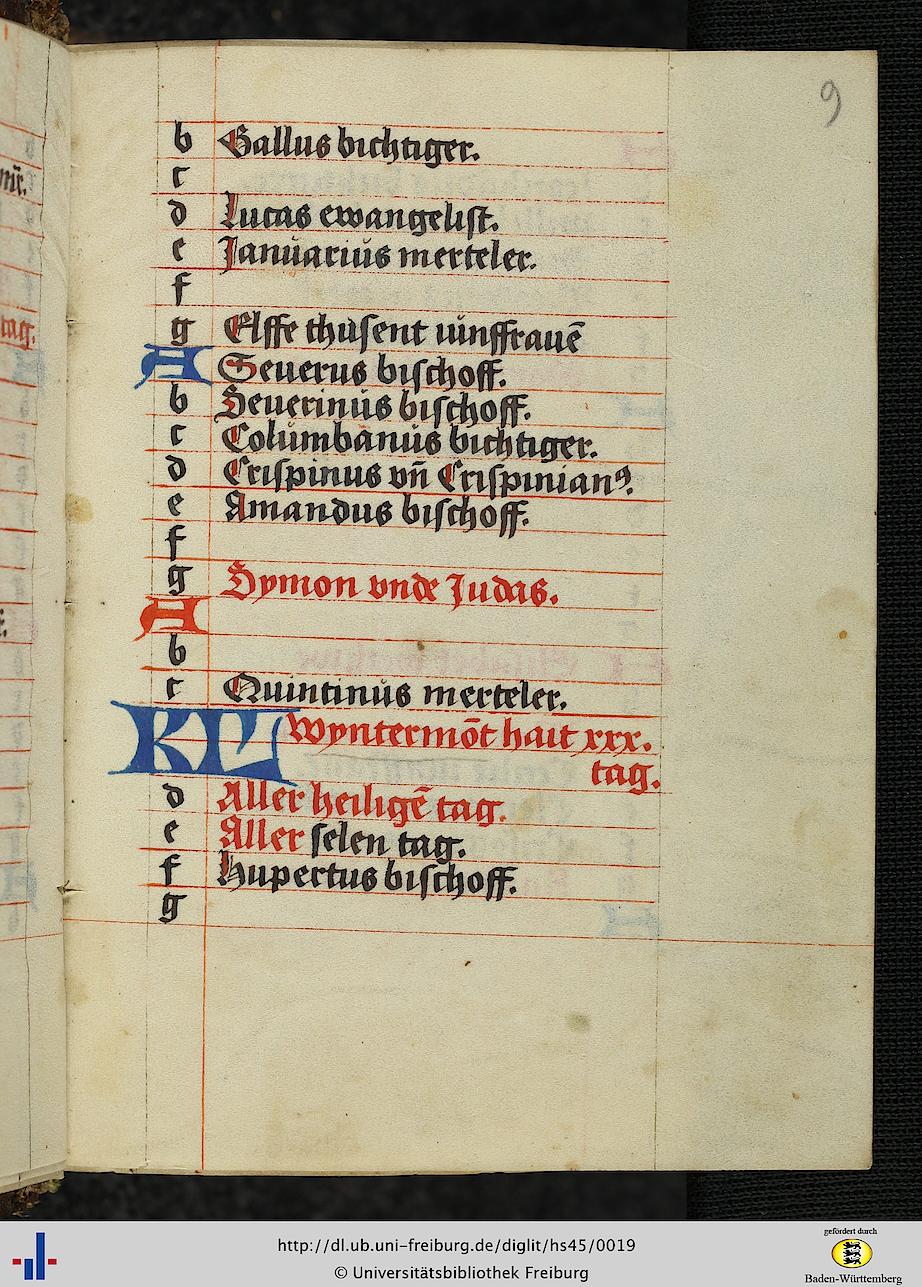 9
b Gallus bichtiger.
c
d Lucas ewangelist.
e Januarius merteler.
f
g Elffe thusent iunffrauē
A Seuerus bischoff.
b Seuerinus bischoff.
c Columbanus bichtiger.
d Crispinus vn̄ Crispinianꝰ.
e Amandus bischoff.
f
g Symon vnde Judas.
A
b
c Quintinus merteler.
KL Wyntermōt hait xxx.
tag.
d Aller heiligē tag.
e Aller selen tag.
f Hupertus bischoff.
g
tag.
http://dl.ub.uni-freiburg.de/diglit/hs45/0019
© Universitätsbibliothek Freiburg
gefördert durch
Baden-Württemberg